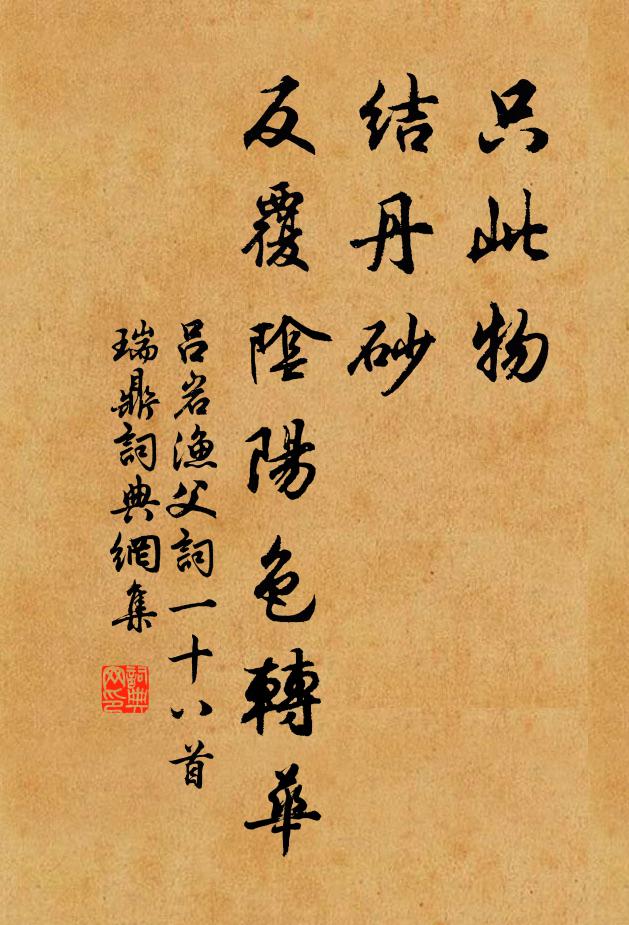 只此物
結丹砂
反覆陰陽色轉華
呂岩漁父詞一十八首
瑞鼎詞典網集
詞典網印